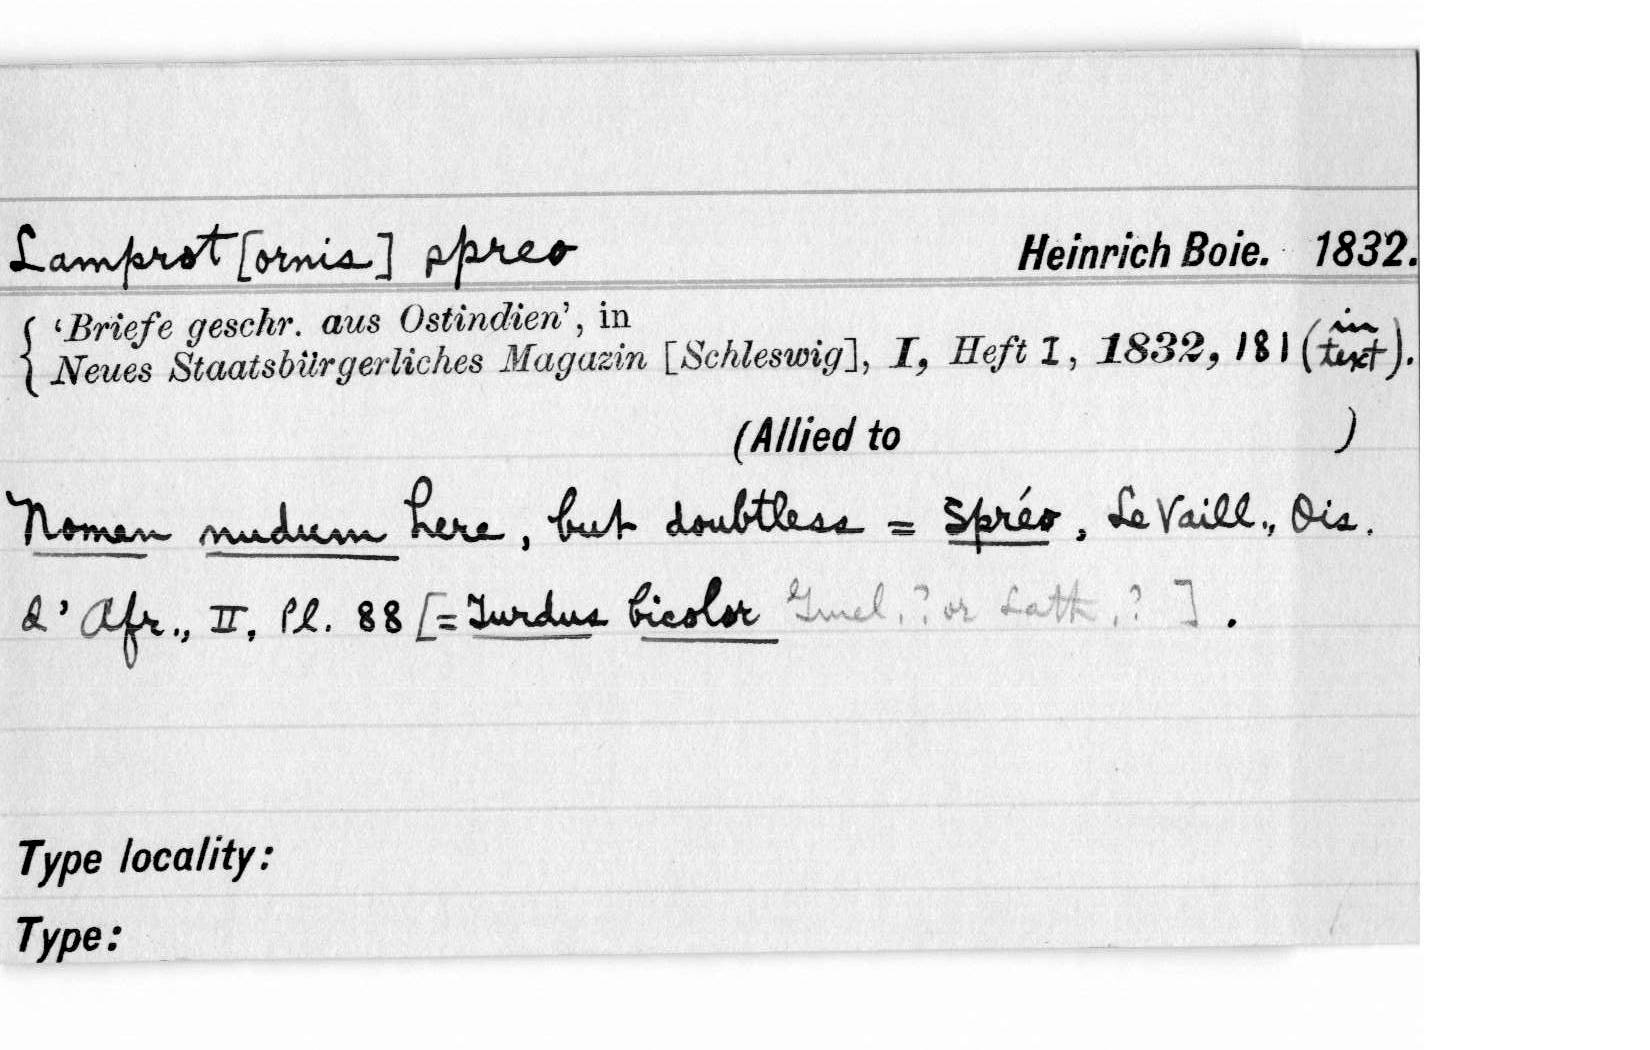 Lamprot[ornis] spreo Heinrich Boie. 1832.
'Briefe geschr. aus Ostindien', in
Neues Staatsbürgerliches Magazin [Schleswig], I, Heft I, 1832, 181 (in text).
(Allied to )
Nomen nudum here, but doubtless = Spréo, Le Vaill., Ois.
d'Afr., II, Pl. 88 [= Turdus bicolor Gmel.? or Lath.? ].
Type locality:
Type: